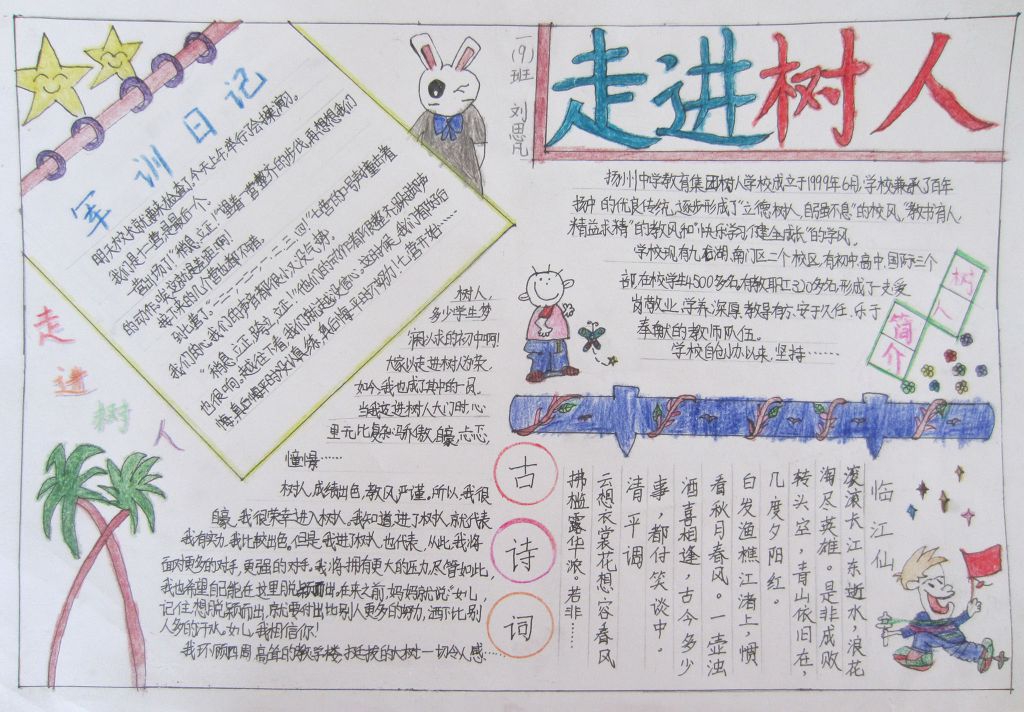 一(9)班 刘思凡
走进树人
扬州中学教育集团树人学校成立于1999年6月,学校兼承了百年
扬中的优良传统,逐步形成了“立德树人,自强不息”的校风,“教书育人,
精益求精”的教风和“快乐学习,健全成长”的学风。
学校现有九龙湖,南门区二个校区,有初中,高中,国际三个
部,在校学生4500多名,有教职工300多名,形成了友爱
岗敬业,学养深厚,教导有方,安于久任,乐于
奉献的教师队伍。
学校自创办以来,坚持……
树人
简介
军训日记
明天校长就要来检查了,今天上午举行了会操演习。
我们很十二营是最后一个。
一营出场了!“稍息,立正!”望着一营整齐的步伐,再想想我们
的动作,
接下来的几个营也都不错。
到七营了。“一二一,一二一,一二三四!”七营的口号
我们的心,我们的声音都很小,又没气势。
“稍息,立正,跨立,立正!”他们的动作
走进树人
树人,
多少学生梦
寐以求的初中啊!
大家以走进树人为荣,
如今,我也成了其中的一员。
当我走进树人大门时,心
里无比复杂:骄傲,自豪,忐忑,
憧憬……
树人,成绩出色,教风严谨。所以,我很
自豪,我很荣幸进入树人。我知道,进了树人,就代表
我有实力,我比较出色。但是,我进了树人,也代表,从此,我将
面对更多的对手,更强的对手。我将拥有更大的压力,尽管如此,
我也希望自己能在这里脱颖而出。在来之前,妈妈就说:“女儿,
记住,想脱颖而出,就要付出比别人更多的努力,洒下比别
人多的汗水。女儿,我相信你!
我环顾四周,高耸的教学楼,挺拔的大树,一切令人感……
古诗词
临江仙
滚滚长江东逝水,浪花
淘尽英雄。是非成败
转头空,青山依旧在,
几度夕阳红。
白发渔樵江渚上,惯
看秋月春风。一壶浊
酒喜相逢,古今多少
事,都付笑谈中。
清平调
云想衣裳花想容,春风
拂槛露华浓。若非……